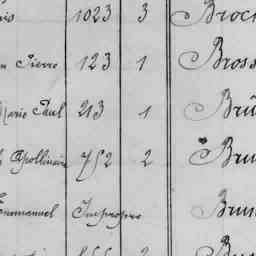 is 1023 3 Broc
n Pierre 123 1 Bross
Marie Paul 213 1 Brû
Apollinaire 752 2 Bru
Emmanuel Impropre Brun